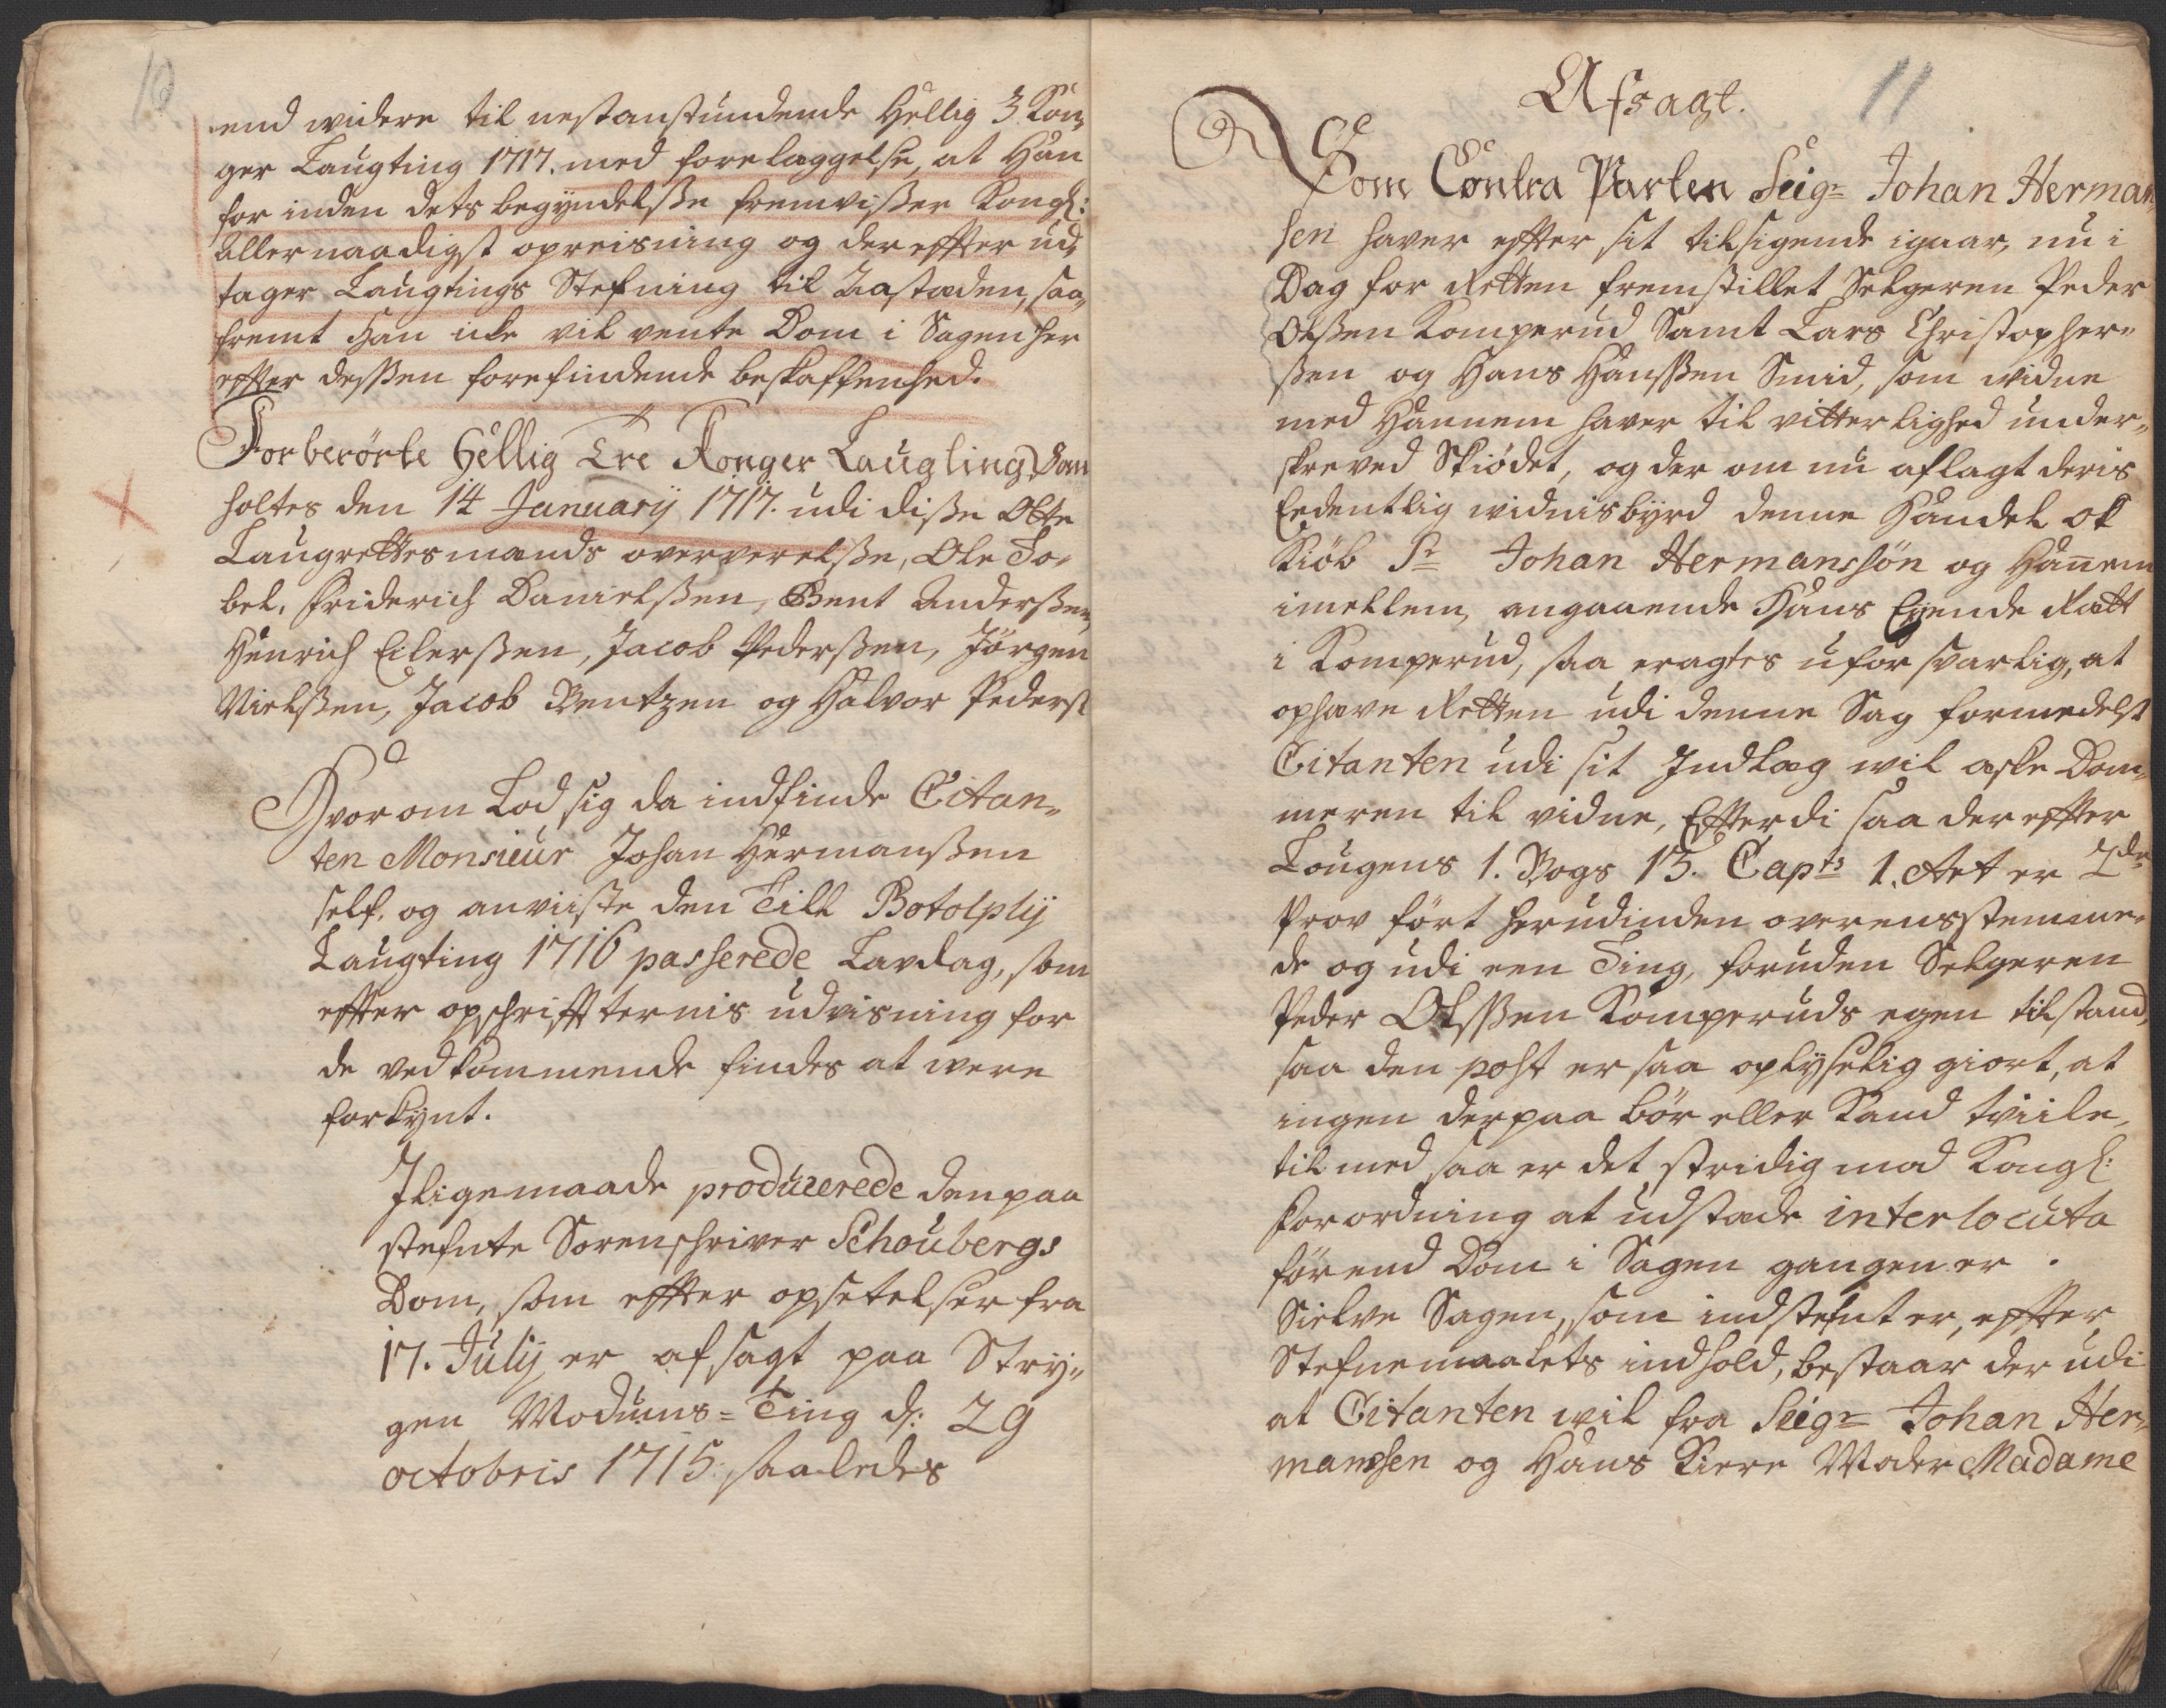 10
end widere til nestanstundende Hellig 3 Kon,,
ger Laugting 1717. med forelæggelse, at Han
for inden dets begyndelsße fremvißer Kongl:
Allernaadigst opreisning og der effter ud,,
tager Laugtings Stefning til Aastæden, saa,,
fremt Han icke vil vente Dom i Sagen her
effter deßen forefindende beskaffenhed.
For berørte Hellig Tre Konger Laugting, som
holtes den 14 January 1717. udi diße Otte
Laugrettesmænds oververelsße, Ole To,,
bel, Friderich Danielßen, Bent Anderßen,
Henrich Eilerßen, Jacob Pederßen, Jørgen
Nielßen, Jacob Bentzen og Halvor Peders:
Hvor om Lod sig da indfinde Citan,,
ten Monsieur Johan Hermanßen
self, og anviiste den Till Botolphy
Laugting 1716 passerede Lavdag, som
effter opschriffternis udvisning for
de vedkommende findes at were
forkynt.
Jligemaade producerede den paa
stefnte Sorenschriver Schoubergs
Dom, som effter opsetelser fra
17. July er afsagt paa Stry,,
gen Modums=Ting d: 29
octobris 1715 saaledes
11
Afsagt.
Som Contra Parten Seigr Johan Herman,,
sen haver effter sit tilsigende igaar, nu i
Dag for Retten fremstillet Selgeren Peder
Olßen Komperud Samt Lars Christopher,,
ßen og Hans Hanßen Smid, som widne
med Hannem haver til vitterlighed under,,
skreved Skiødet, og der om nu aflagt deris
Eedentlig widnisbyrd denne Handel ok
Kiøb Sr Johan Hermanssøn og Hannem
imellem, angaaende Hans Eyende Rætt
i Komperud, saa eragtes uforsvarlig, at
ophæve Retten udi denne Sag formedelst
Citanten udi sit Indlæg wil æske Dom,,
meren til vidne, Effterdi saa der effter
Lougens 1. Bogs 13. Capts 1. Art er 2de
Prov ført herudinden overensstemme,,
de og udi een Ting, foruden Selgeren
Peder Olsßen Komperuds egen tilstand,
saa den post er saa oplyselig giort, at
ingen derpaa bør eller Kand tviile,
til med saa er det stridig mod Kongl:
forordning at udstæde interlocuta
førend Dom i Sagen gangen er.
Sielve Sagen, som indstefnt er, effter
Stefnemaalets indhold, bestaar der udi
at Citanten wil fra Seigr Johan Her,,
mansen og Hans Kiere Moder Madame